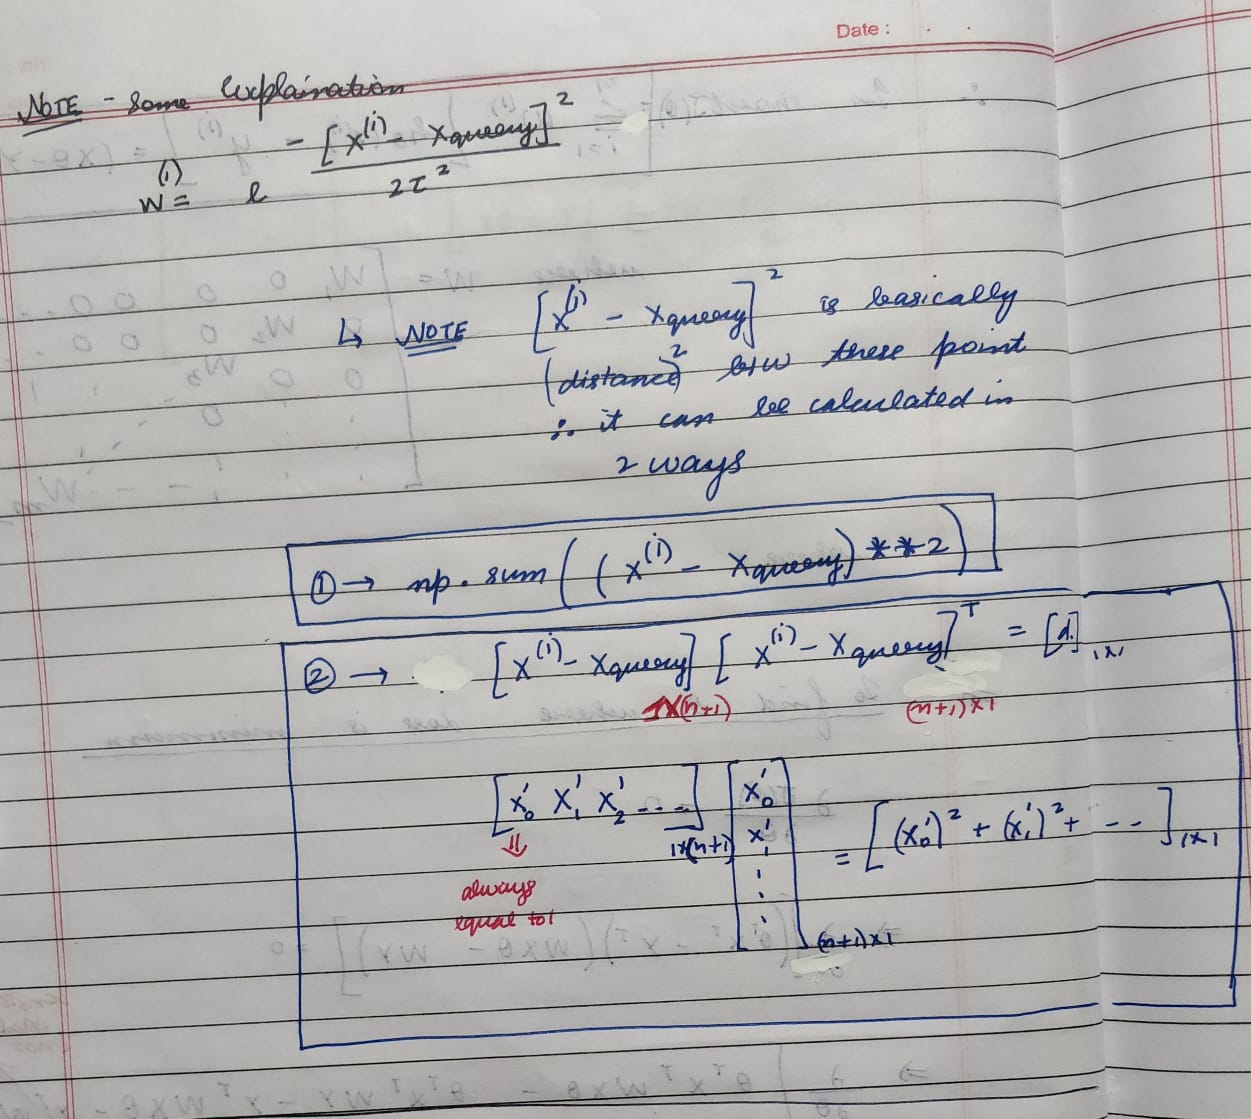 Date :
NOTE - Some Explaination
w⁽ⁱ⁾ = e^( - [x⁽ⁱ⁾ - xqueery]² / 2τ² )
↳ NOTE [x⁽ⁱ⁾ - xqueery]² is basically
(distance)² b/w these point
∴ it can be calculated in
2 ways
① → np.sum((x⁽ⁱ⁾ - xqueery)**2)
② → [x⁽ⁱ⁾ - xqueery] [x⁽ⁱ⁾ - xqueery]ᵀ = [d]1x1
1x(n+1) (n+1)x1
[x₀' x₁' x₂' ---]1x(n+1) [x₀' x₁' ⋮](n+1)x1 = [(x₀')² + (x₁')² + --]1x1
⇓
always
equal to 1